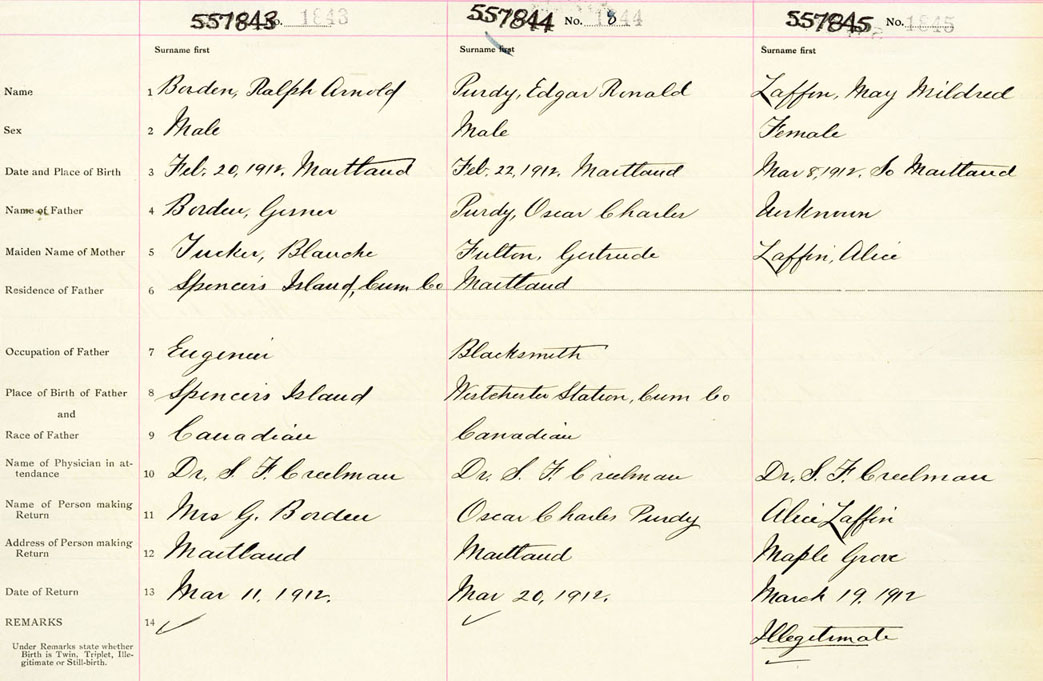 557843 No. 1843 557844 No. 1844 557845 No. 1845
Surname first Surname first Surname first
Name 1 Borden, Ralph Arnold Purdy, Edgar Ronald Laffin, May Mildred
Sex 2 Male Male Female
Date and Place of Birth 3 Feb. 20, 1912. Maitland Feb. 22, 1912. Maitland Mar 8, 1912. So Maitland
Name of Father 4 Borden, Gesner Purdy, Oscar Charles Unknown
Maiden Name of Mother 5 Tucker, Blanche Fulton, Gertrude Laffin, Alice
Residence of Father 6 Spencer's Island, Cum Co Maitland
Occupation of Father 7 Engineer Blacksmith
Place of Birth of Father 8 Spencer's Island Westchester Station, Cum Co
and
Race of Father 9 Canadian Canadian
Name of Physician in at-
tendance 10 Dr. S. F. Creelman Dr. S. F. Creelman Dr. S. F. Creelman
Name of Person making
Return 11 Mrs G. Borden Oscar Charles Purdy Alice Laffin
Address of Person making
Return 12 Maitland Maitland Maple Grove
Date of Return 13 Mar 11, 1912. Mar 20, 1912. March 19, 1912
REMARKS 14 Illegitimate
Under Remarks state whether
Birth is Twin, Triplet, Ille-
gitimate or Still-birth.